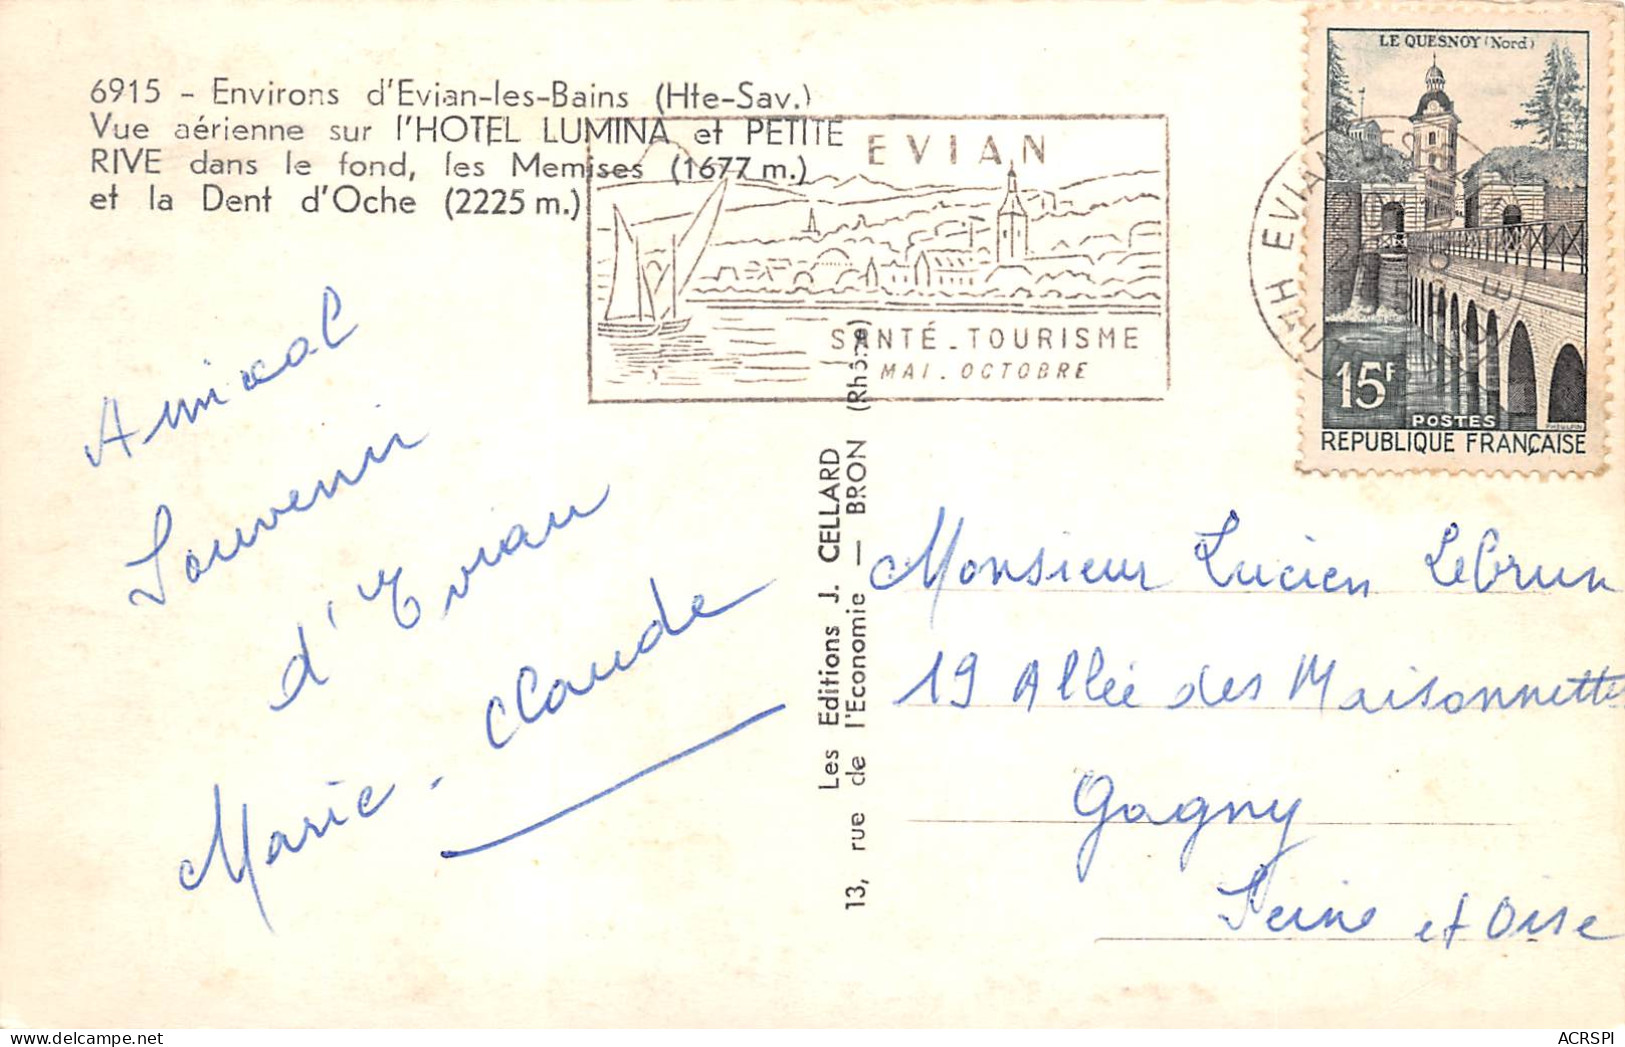 6915 - Environs d'Evian-les-Bains (Hte-Sav.)
Vue aérienne sur l'HOTEL LUMINA et PETITE
RIVE dans le fond, les Memises (1677 m.)
et la Dent d'Oche (2225 m.)
EVIAN
SANTÉ - TOURISME
MAI - OCTOBRE
LE QUESNOY (Nord)
15F
POSTES
REPUBLIQUE FRANÇAISE
EVIAN LES
HAU
Amical
Souvenir
d'Evian
Marie-Claude
Les Editions J. CELLARD
13, rue de l'Economie — BRON (Rhône)
Monsieur Lucien Lebrun
19 Allée des Maisonnettes
Gagny
Seine et Oise
ACRSPI